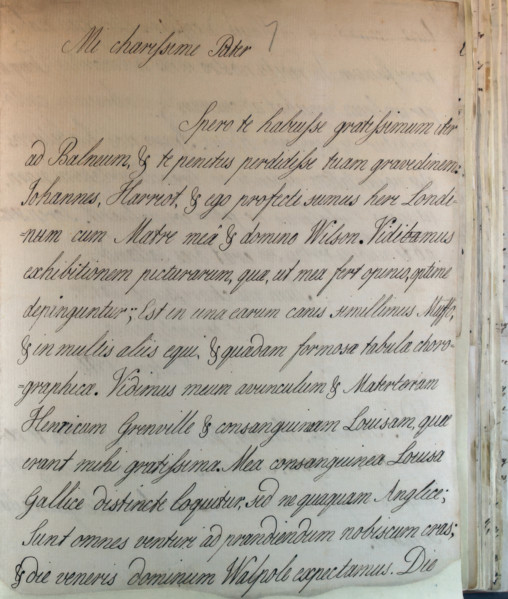 Me charissime Pater
Spero te habuisse gratissimum iter
ad Balneum, & te penitus perdidisse tuam gravedinem:
Johannes, Harriot, & ego profecti sumus heri Londi-
-num cum Matre meâ & domino Wilson. Vidibamus
exhibitionem picturarum, quæ, ut mea fert opinio, optime
depinguntur; Est in una earum canis simillimus Muffo,
& in multis aliis equi, & quædam formosa tabula choro-
-graphica. Vidimus meum avunculum & Materteram
Henricum Grenville & consanguineam Louisam, quæ
erant mihi gratissima. Mea consanguinea Louisa
Gallice distincte loquitur, sed ne quaquam Anglice;
Sunt omnes venturi ad prandiendum nobiscum cras;
& die veneris dominum Walpole expectamus. Die